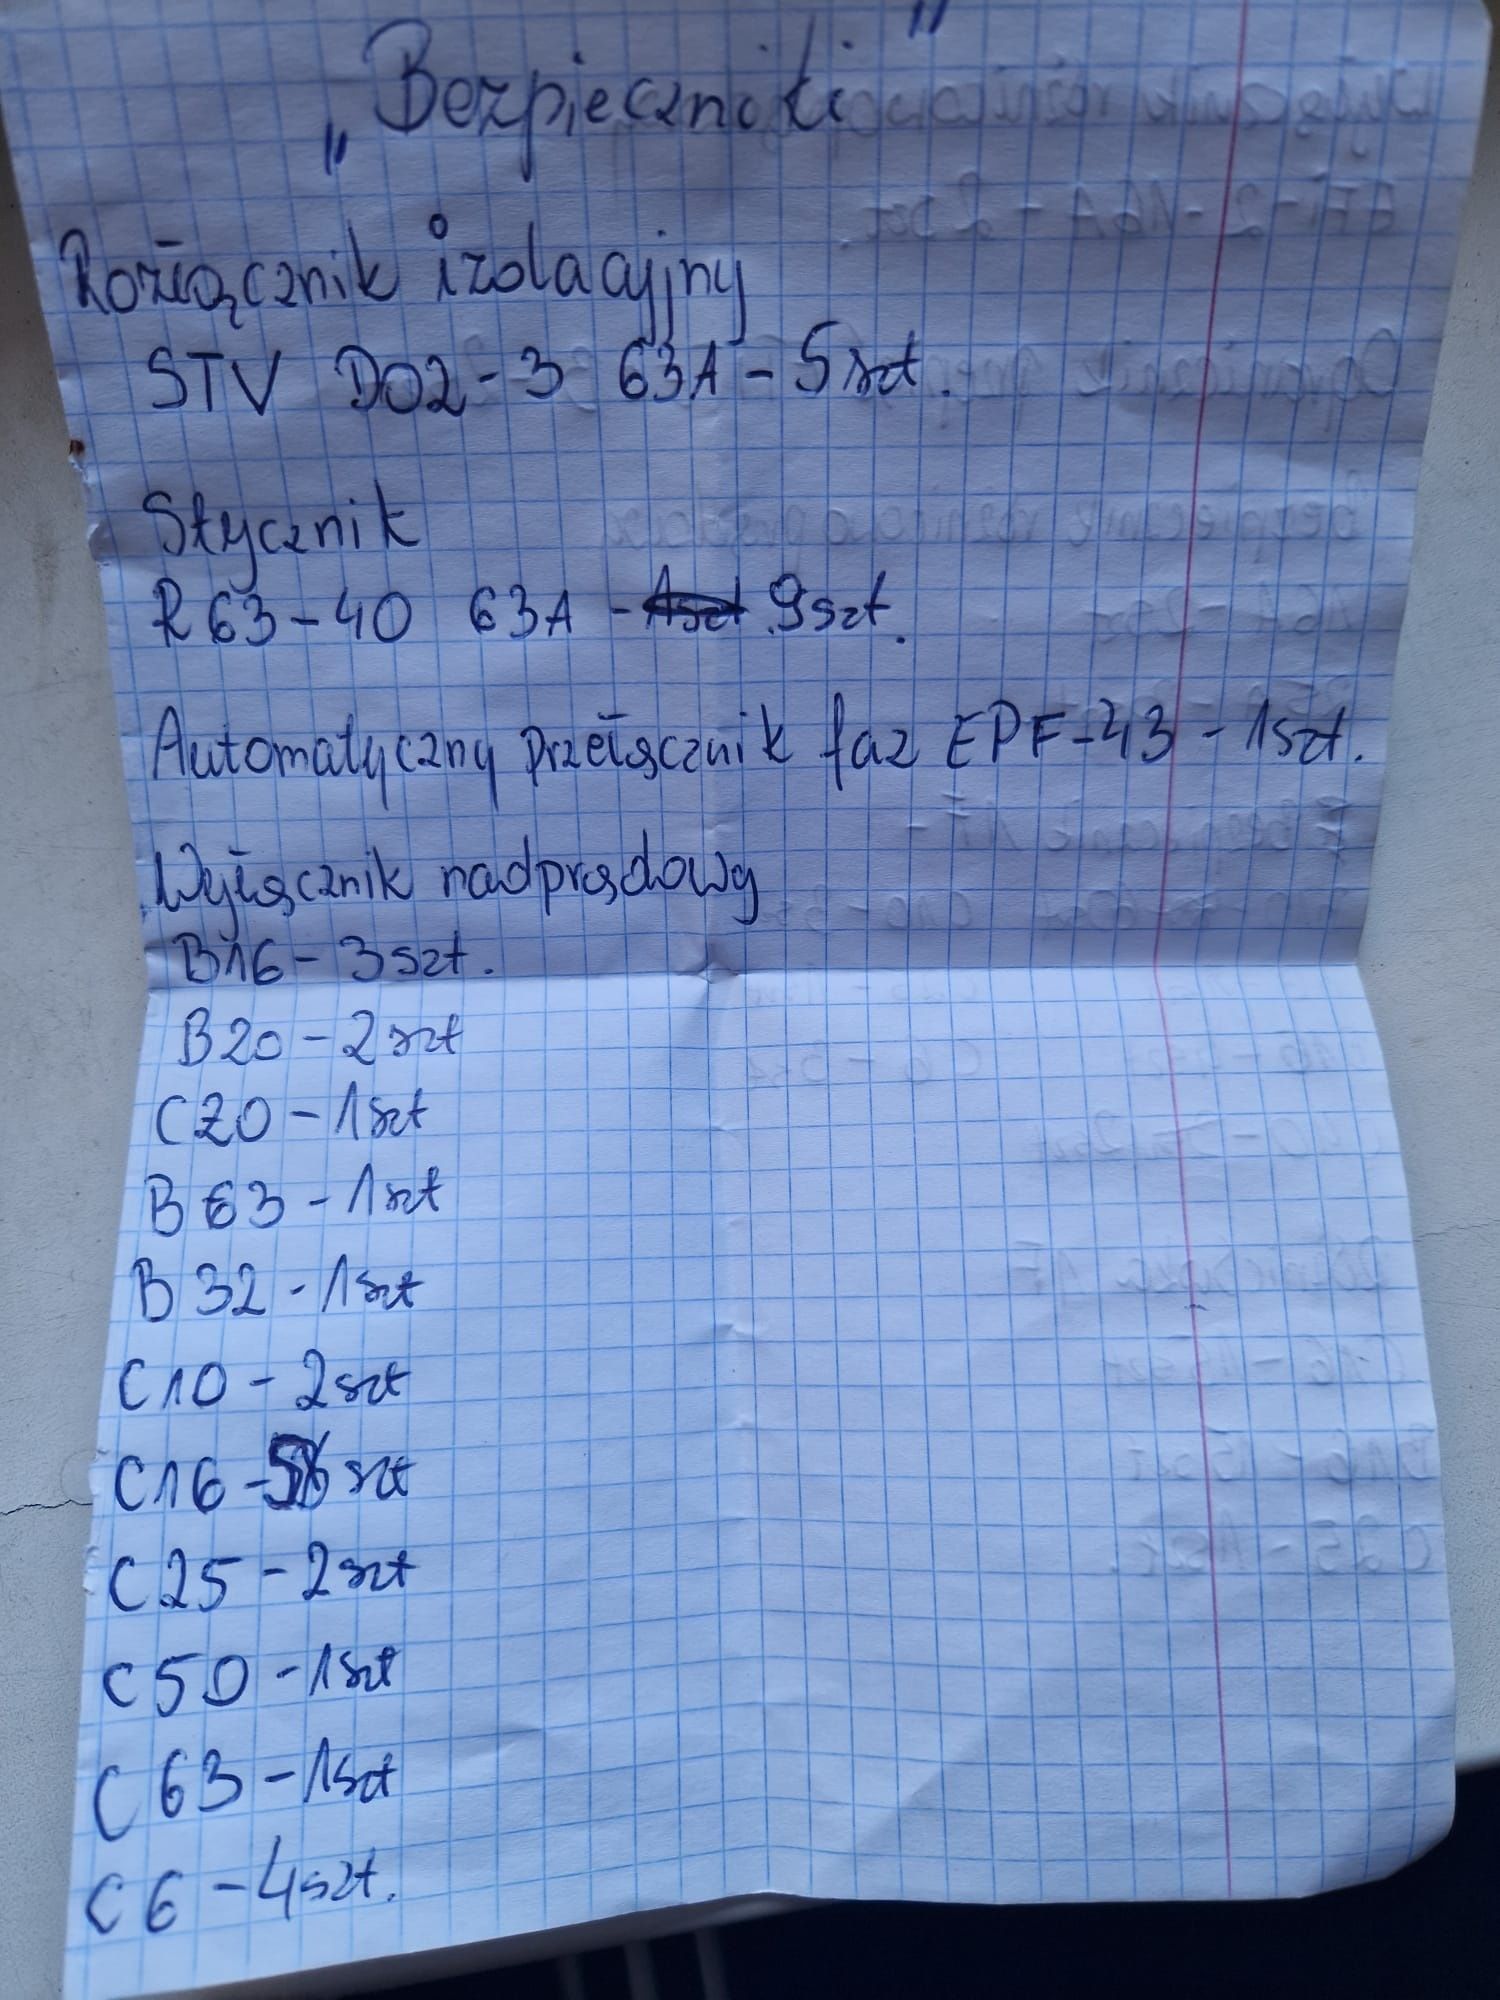 „Bezpieczniki”
Rozłącznik izolacyjny
STV D02-3 63A - 5szt.
Stycznik
R63-40 63A - 9szt.
Automatyczny przełącznik faz EPF-43 - 1szt.
Wyłącznik nadprądowy
B16 - 3szt.
B20 - 2szt
C20 - 1szt
B63 - 1szt
B32 - 1szt
C10 - 2szt
C16 - szt
C25 - 2szt
C50 - 1szt
C63 - 1szt
C6 - 4szt.